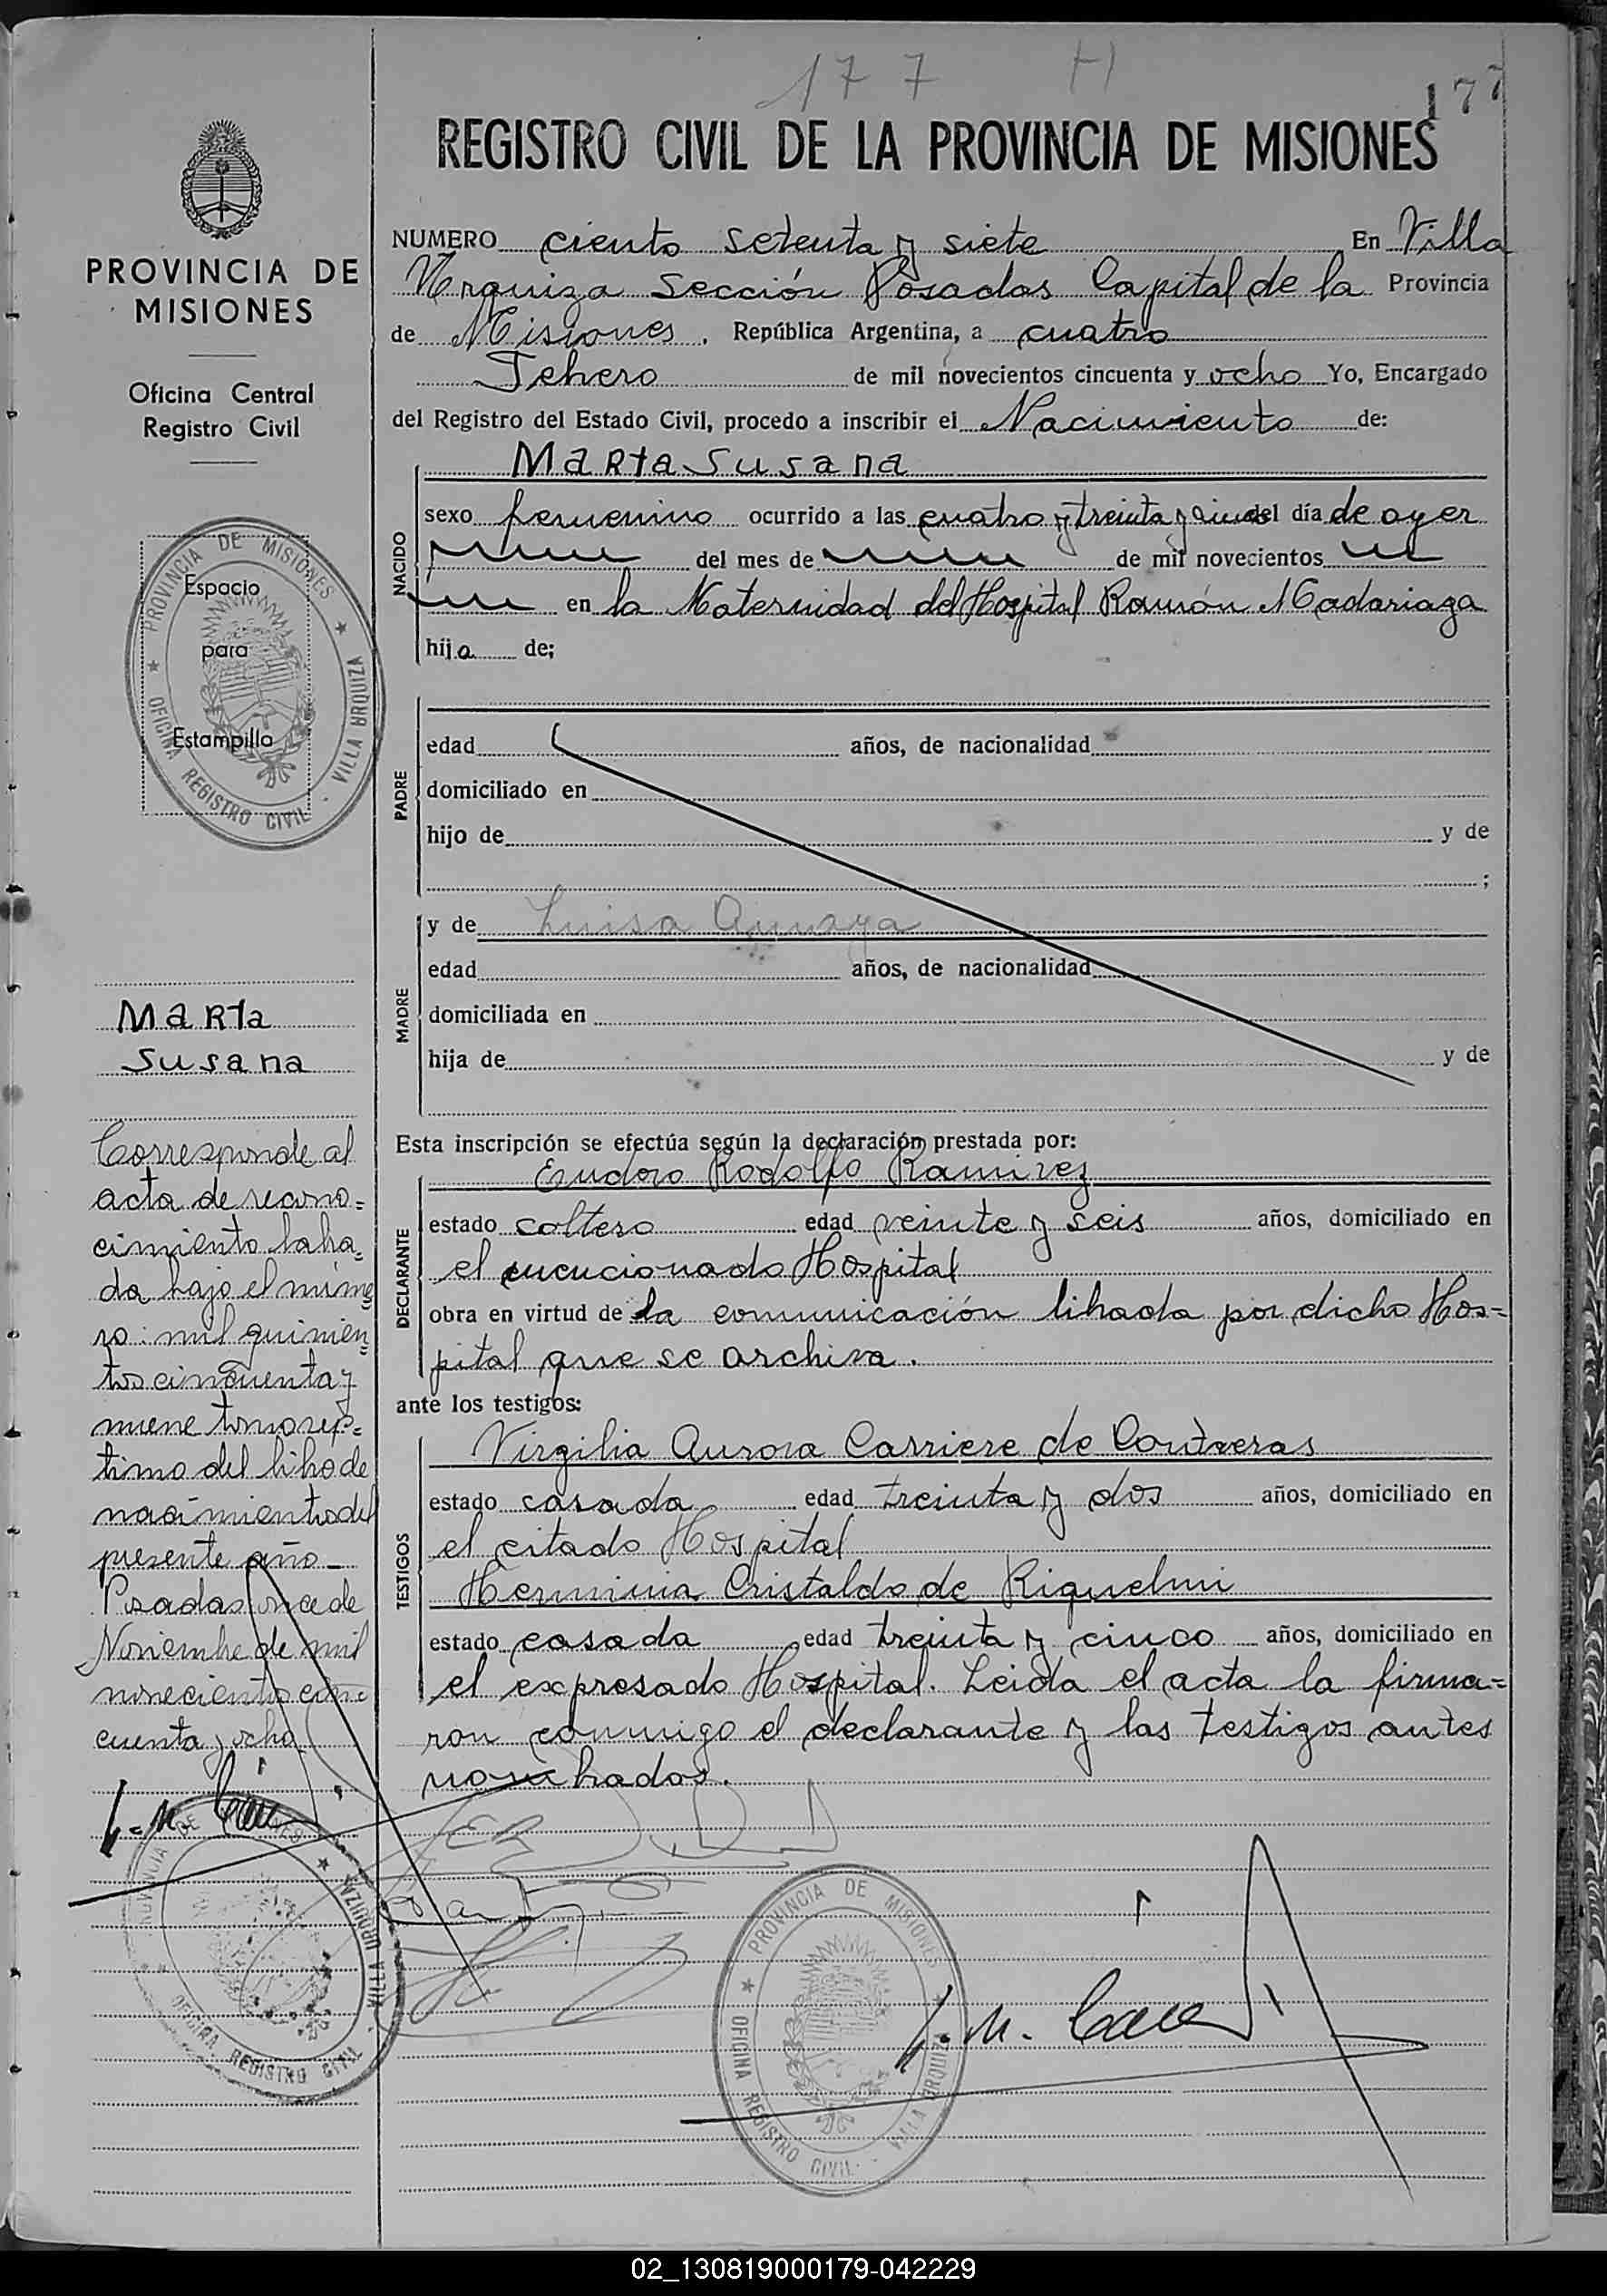 177 H
177
REGISTRO CIVIL DE LA PROVINCIA DE MISIONES
PROVINCIA DE
MISIONES
Oficina Central
Registro Civil
PROVINCIA DE MISIONES
OFICINA REGISTRO CIVIL - VILLA URQUIZA
Espacio
para
Estampilla
Marta
Susana
Corresponde al
acta de recono=
cimiento labra=
da bajo el núme
ro: mil quinien
tos cincuenta y
nueve tomo sép=
timo del libro de
nacimientos del
presente año
Posadas once de
Noviembre de mil
novecientos cin
cuenta y ocho
PROVINCIA DE MISIONES
OFICINA REGISTRO CIVIL - VILLA URQUIZA
NUMERO ciento setenta y siete En Villa
Urquiza Sección Posadas Capital de la Provincia
de Misiones, República Argentina, a cuatro
Febrero de mil novecientos cincuenta y ocho Yo, Encargado
del Registro del Estado Civil, procedo a inscribir el Nacimiento de:
NACIDO
Marta Susana
sexo femenino ocurrido a las cuatro y treinta y cinco del día de ayer
del mes de de mil novecientos
en la Maternidad del Hospital Ramón Madariaga
hija de;
PADRE
edad años, de nacionalidad
domiciliado en
hijo de y de
;
MADRE
y de Luisa
edad años, de nacionalidad
domiciliada en
hija de y de
Esta inscripción se efectúa según la declaración prestada por:
DECLARANTE
Eudoro Rodolfo Ramirez
estado soltero edad veinte y seis años, domiciliado en
el mencionado Hospital
obra en virtud de la comunicación librada por dicho Hos=
pital que se archiva.
ante los testigos:
TESTIGOS
Virgilia Aurora Carriere de Contreras
estado casada edad treinta y dos años, domiciliado en
el citado Hospital
Herminia Cristaldo de Riquelmi
estado casada edad treinta y cinco años, domiciliado en
el expresado Hospital. Leida el acta la firma=
ron conmigo el declarante y las testigos antes
nombrados.
PROVINCIA DE MISIONES
OFICINA REGISTRO CIVIL - VILLA URQUIZA
02_130819000179-042229